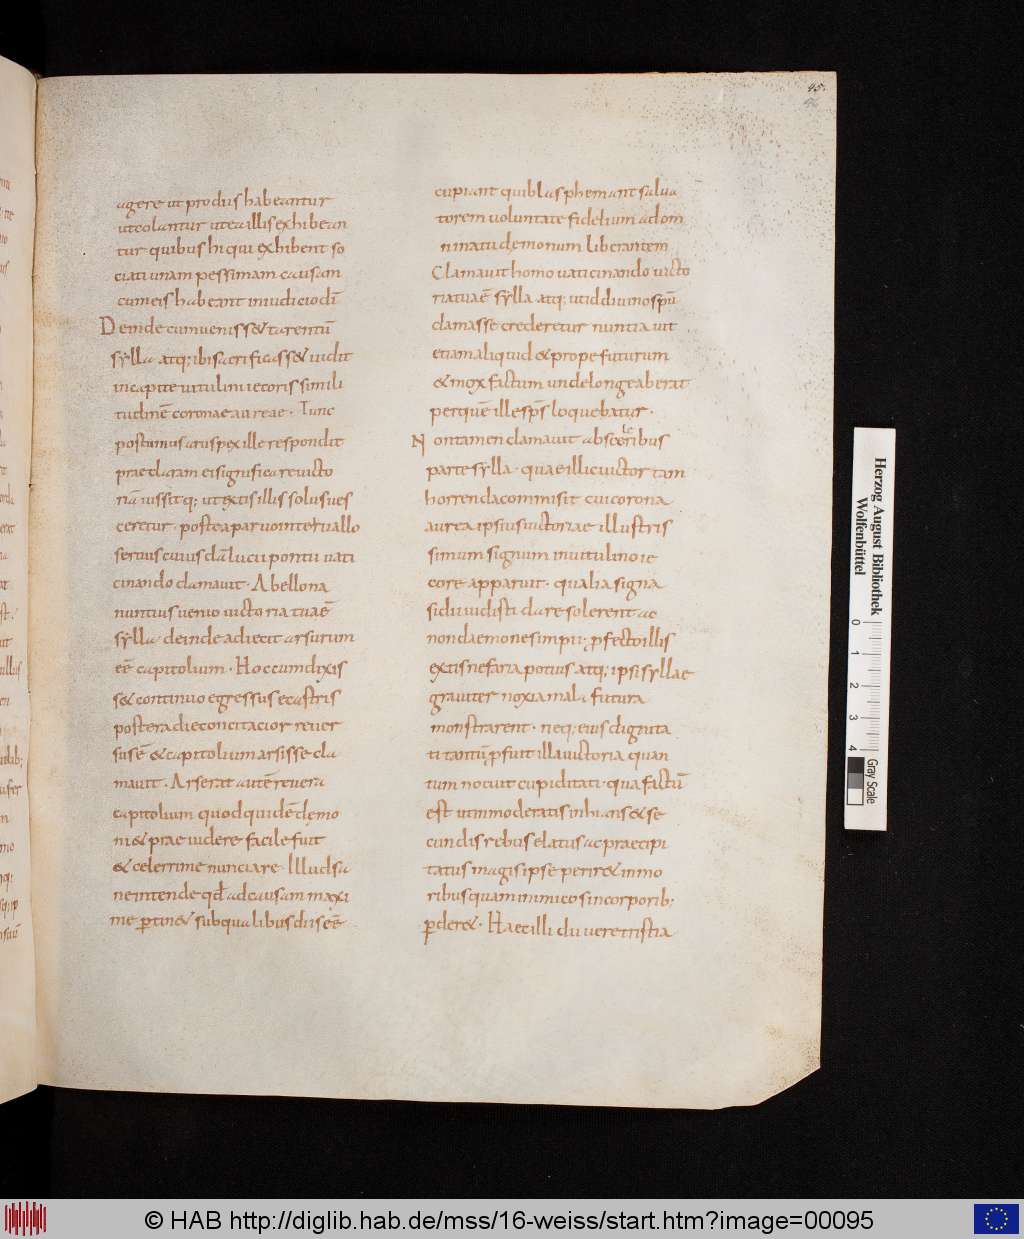 45.
46
agere ut prodiis habeantur
utcolantur utea illis exhibean
tur quibus hi qui exhibent so
ciati unam pessimam causam
cum eis habeant in iudicio dī
Deinde cum uenisset tarentū
sylla atq; ibi sacrificasset uidit
in capite uitulini iecoris simili
tudinē coronae aureae · Tunc
postumus aruspex ille respondit
praeclaram ei significare uicto
riā iussitq; ut extis illis solus ues
ceretur · postea paruo interuallo
seruus cuiusdā luci pontii uati
cinando clamauit · A bellona
nuntius uenio uictoria tua ē
sylla deinde adiecit arsurum
eē capitolium · Hoc cum dixis
set continuo egressus e castris
postera die concitacior reuer
sus ē et capitolium arsisse cla
mauit · Arserat autē reuera
capitolium quod quidē demo
ni et praeuidere facile fuit
et celerrime nunciare · Illud sa
ne intende qđ ad causam maxi
me pertinet sub qualibus diis eē
cupiant qui blasphemant salua
torem uoluntate fidelium adom
ninatu demonum liberantem
Clamauit homo uaticinando uicto
ria tua ē sylla atq; ut id diuino spū
clamasse crederetur nuntiauit
etiam aliquid et prope futurum
et mox factum unde longe aberat
per quē ille sp̄s loquebatur ·
Non tamen clamauit ab sceleribus
parte sylla · quae illic uictor tam
horrenda commisit cui corona
aurea ipsius uictoriae illustris
simum signum in uitulino ie
core apparuit · qualia signa
si dii iudisti dare solerent ac
non daemones impii · profecto illis
extis nefaria potius atq; ipsi syllae
grauiter noxia mala futura
monstrarent · neq; eius dignita
ti tantū p̄fuit illa uictoria quan
tum nocuit cupiditati · qua factū
est ut inmoderatis inhians et se
cundis rebus elatus ac praecipi
tatus magis ipse periret in mo
ribus quam inimicos in corporib;
perderet · Haec illi dii uere tristia
Herzog August Bibliothek
Wolfenbüttel
0 1 2 3 4
Gray Scale
© HAB http://diglib.hab.de/mss/16-weiss/start.htm?image=00095